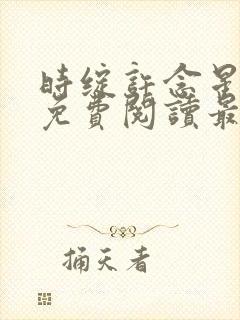 時綻許念星
免費閱讀最
捅天者